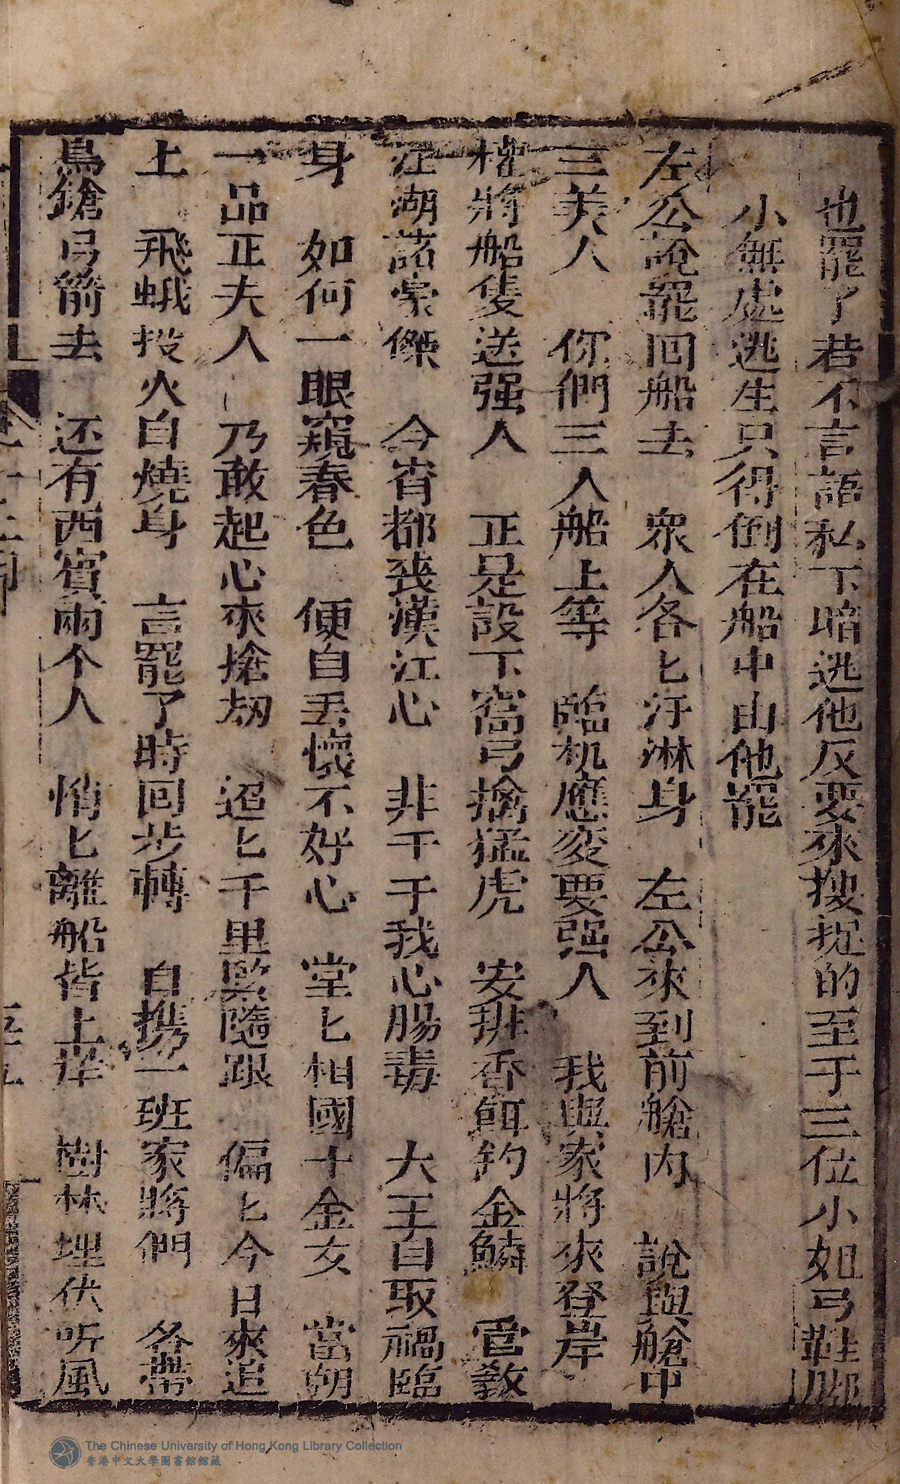 也罷了若不言語私下暗逃他反要來搜捉的至于三位小姐弓鞋脚
小無處逃生只得倒在船中由他罷
左公說罷回船去　衆人各匕汗淋身　左公來到前艙内　說與艙中
三美人　你們三人船上等　臨机應变要强人　我與家將來登岸
權將船隻送强人　正是設下窩弓擒猛虎　安排香餌釣金鱗　管教
江湖諸豪傑　今宵都喪漢江心　非干于我心腸毒　大王自取禍臨
身　如何一眼窺春色　便自丟懷不好心　堂匕相國千金女　當朝
一品正夫人　乃敢起心來搶刼　迢匕千里緊隨跟　偏匕今日來追
上　飛蛾投火自燒身　言罷了時回步轉　自携一班家將們　各帶
鳥鎗弓箭去　还有西賓兩个人　悄匕離船皆上岸　樹林埋伏听風
The Chinese University of Hong Kong Library Collection
香港中文大學圖書館館藏